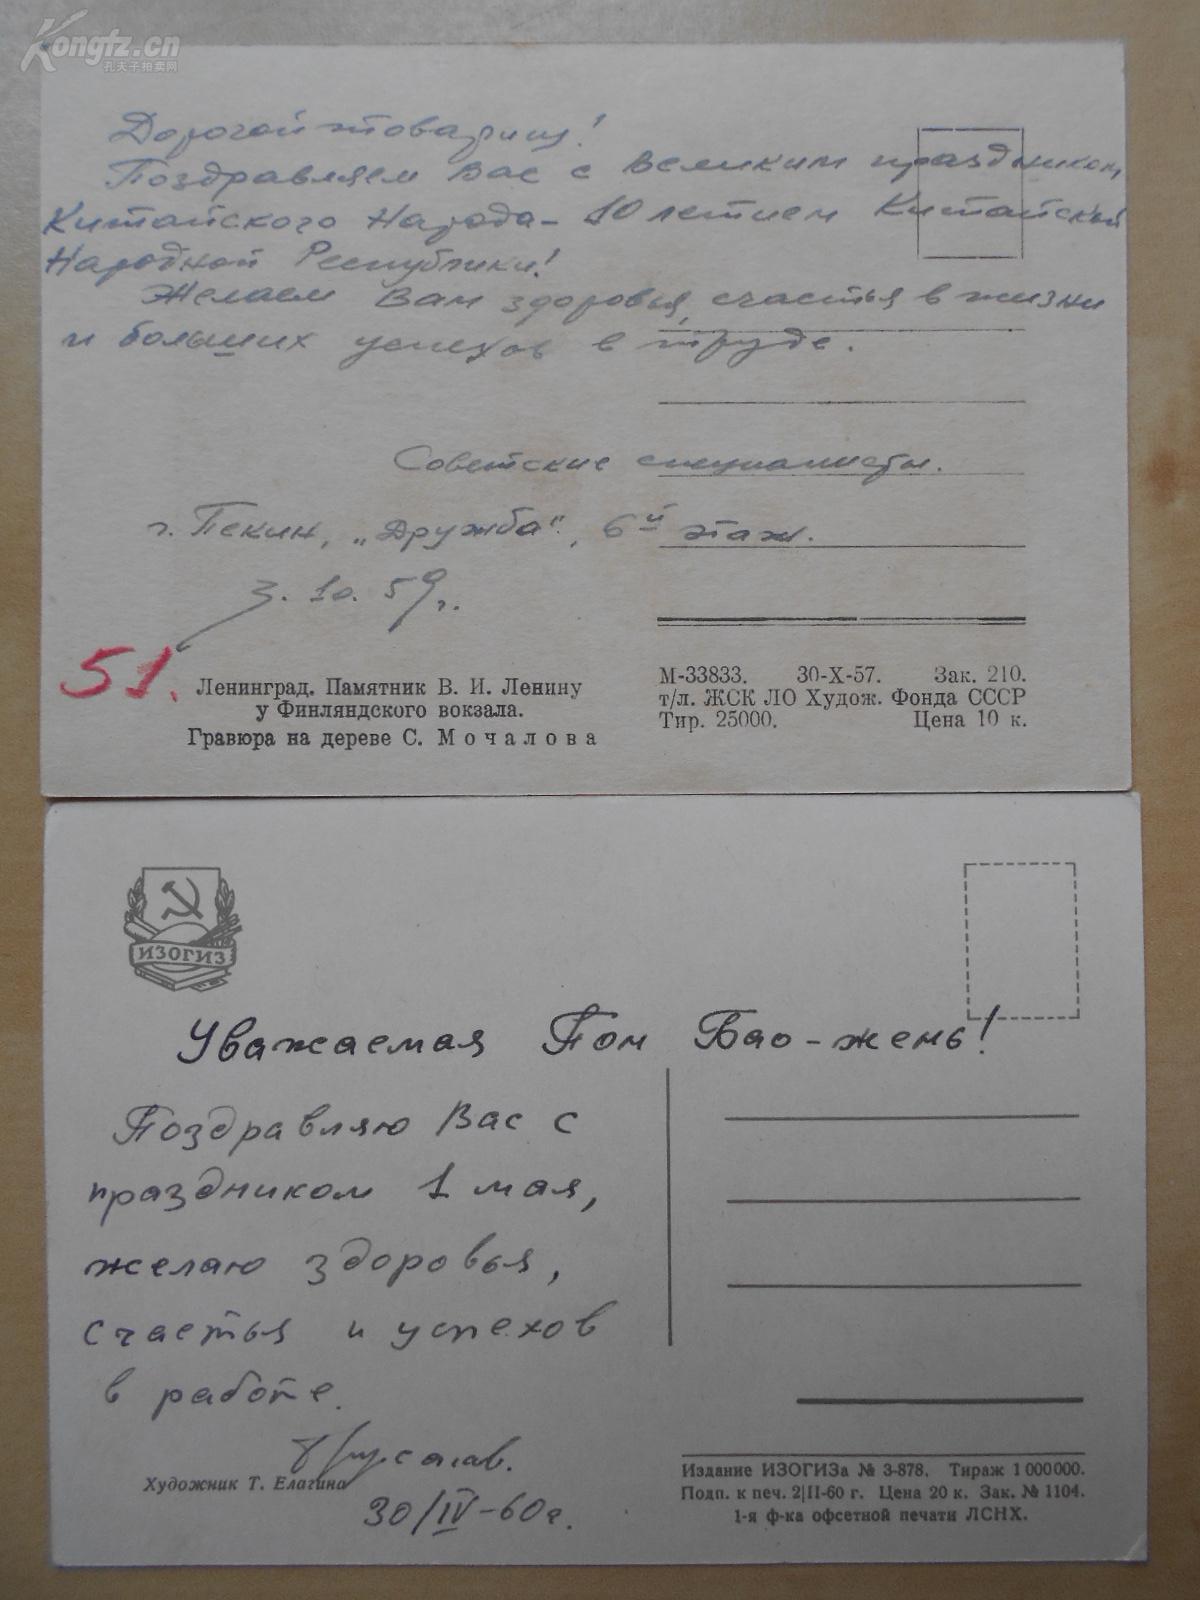 Kongfz.cn
孔夫子拍卖网
Дорогой товарищ!
Поздравляем Вас с великим праздником
Китайского Народа - 10 летием Китайской
Народной Республики!
Желаем Вам здоровья, счастья в жизни
и больших успехов в труде.
Советские специалисты.
г. Пекин, „Дружба", 6й этаж.
3. 10. 59 г.
51.
Ленинград. Памятник В. И. Ленину
у Финляндского вокзала.
Гравюра на дереве С. Мочалова
М-33833. 30-X-57. Зак. 210.
т/л. ЖСК ЛО Худож. Фонда СССР
Тир. 25000. Цена 10 к.
ИЗОГИЗ
Уважаемая Пон Бао-жень!
Поздравляю Вас с
праздником 1 мая,
желаю здоровья,
счастья и успехов
в работе.
Художник Т. Елагина
30/IV-60г.
Издание ИЗОГИЗа № 3-878. Тираж 1 000 000.
Подп. к печ. 2|II-60 г. Цена 20 к. Зак. № 1104.
1-я ф-ка офсетной печати ЛСНХ.